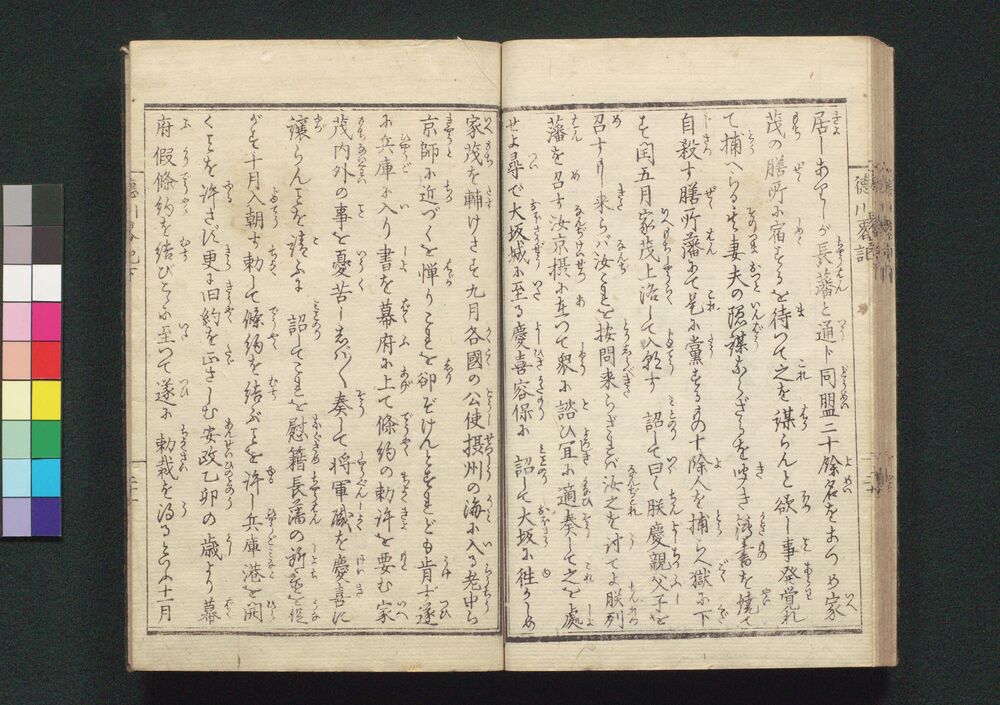 居しありしが長藩と通ト同盟二十餘名をあつめ家
茂の膳所に宿するを待つて之を謀らんと欲し事発覚れ
て捕へらるゝ其妻夫の陰謀ならざるを嘆き書を焼て
自殺す膳所藩にて是に黨するもの十餘人を捕へ獄に下
す閏五月家茂上洛して入朝す詔して曰く朕慶親父子を
召すに来らバ汝これを按問来らざれバ汝之を討てよ朕列
藩を召す汝京摂に在つて衆に諮ひ宜に適奏して之を處
せよ尋で大坂城に至る慶喜容保に詔して大坂に徃かしめ
家茂を輔けさす九月各國の公使摂州の海に入る老中ら
京師に近づくを憚りこれを卻ぞけんとすれども肯ぜず遂
に兵庫に入り書を幕府に上て條約の勅許を要む家
茂内外の事を憂苦ししば〳〵奏して将軍職を慶喜に
讓らんことを請ふに詔してこれを慰籍長藩の所置を促
がす十月入朝す勅して條約を結ぶことを許し兵庫港を開
くことを許さず更に旧約を正さしむ安政乙卯の歳より幕
府假條約を結びこゝに至つて遂に勅裁を得ると云ふ十一月
徳川